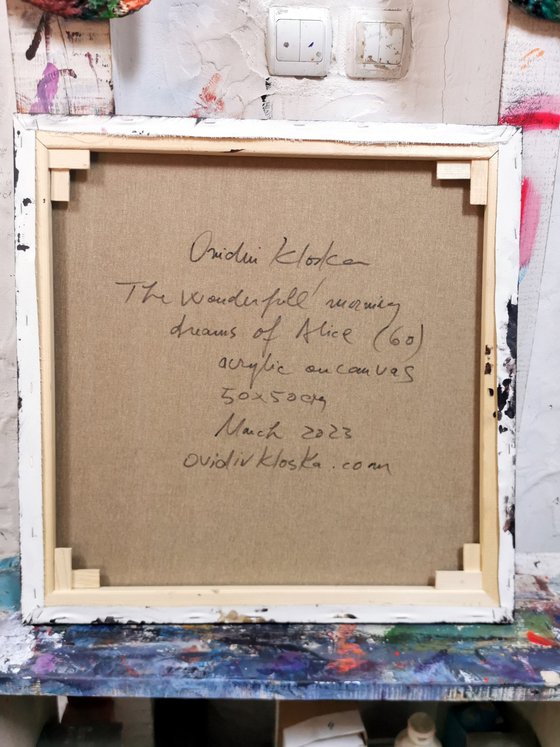 Ovidiu Kloska
The Wonderfull morning
dreams of Alice (60)
acrylic on canvas
50x50cm
March 2023
ovidivkloska.com